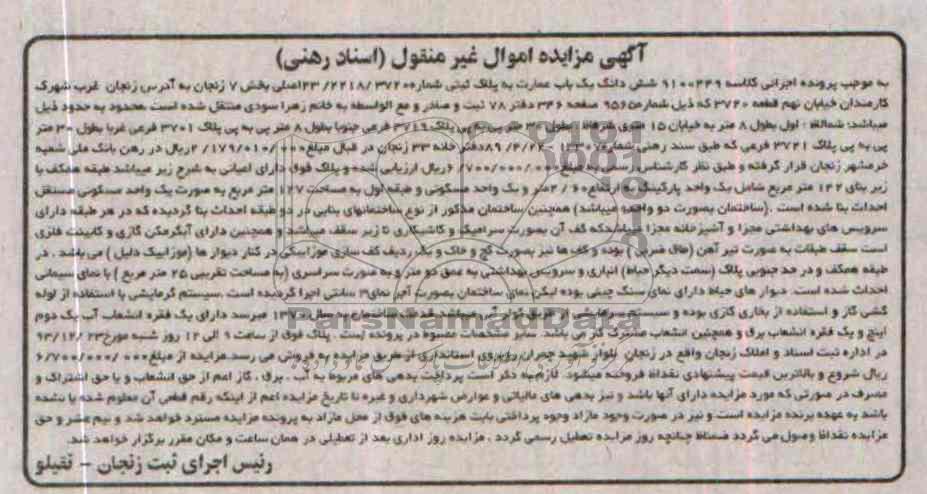 آگهی مزایده اموال غیر منقول (اسناد رهنی)
به موجب پرونده اجرائی کلاسه ۹۱۰۰۴۴۹ شش دانگ یک باب عمارت به پلاک ثبتی شماره ۳۷۲۰ /۲۲۱۸ /۲۳اصلی بخش ۷ زنجان به آدرس زنجان غرب شهرک
کارمندان خیابان نهم قطعه ۳۷۲۰ که ذیل شماره ۹۵۶۵ صفحه ۳۳۶ دفتر ۷۸ ثبت و صادر و مع الواسطه به خانم زهرا سودی منتقل شده است .محدود به حدود ذیل
میباشد: شمالا: اول بطول ۸ متر به خیابان ۱۵ متری شرقا: بطول ۳۰ متر پی به پی پلاک ۳۷۱۹ فرعی جنوبا بطول ۸ متر پی به پی پلاک ۳۷۰۱ فرعی غربا بطول ۳۰ متر
پی به پی پلاک ۳۷۲۱ فرعی که طبق سند رهنی شماره ۸۹/۴/۲۲ دفترخانه ۳۳ زنجان در قبال مبلغ ۲/۱۷۹/۰۱۰/۰۰۰ ریال در رهن بانک ملی شعبه
خرمشهر زنجان قرار گرفته و طبق نظر کارشناس رسمی به مبلغ ۶/۷۰۰/۰۰۰/۰۰۰ ریال ارزیابی شده و پلاک فوق دارای اعیانی به شرح زیر میباشد طبقه همکف با
زیر بنای ۱۴۲ متر مربع شامل یک واحد پارکینگ به ارتفاع ۲/۶۰ متر و یک واحد مسکونی و طبقه اول به مساحت ۱۲۷ متر مربع به صورت یک واحد مسکونی مستقل
احداث بنا شده است .(ساختمان بصورت دو واحد میباشد) همچنین ساختمان مذکور از نوع ساختمانهای بنایی در دو طبقه احداث بنا گردیده که در هر طبقه دارای
سرویس های بهداشتی مجزا و آشپزخانه مجزا میباشدکه کف آن بصورت سرامیک و کاشیکاری تا زیر سقف میباشد و همچنین دارای آبگرمکن گازی و کابینت فلزی
است سقف طبقات به صورت تیر آهن (طاق ضربی) بوده و کف ها نیز بصورت گچ و خاک و یک ردیف کف سازی موزاییکی در کنار دیوار ها (موزاییک دلیل) می باشد . در
طبقه همکف و در حد جنوبی پلاک (سمت دیگر حیاط) انباری و سرویس بهداشتی به عمق دو متر و به صورت سراسری (به مساحت تقریبی ۲۵ متر مربع ) با نمای سیمانی
احداث شده است. دیوار های حیاط دارای نمای سنگ چینی بوده لیکن نمای ساختمان بصورت آجر نمای ۳ سانتی اجرا گردیده است .سیستم گرمایشی با استفاده از لوله
کشی گاز و استفاده از بخاری گازی بوده و سیستم سرمایشی از طریق کولر آبی میباشد قدمت ساختمان به سال میرسد دارای یک فقره انشعاب آب یک دوم
اینچ و یک فقره انشعاب برق و همچنین انشعاب مشترک گاز می باشد. سایر مشخصات مرسوم در پرونده است . پلاک فوق از ساعت ۹ الی ۱۲ روز شنبه مورخ ۹۳/۱۲/۲۳
در اداره ثبت اسناد و املاک زنجان واقع در زنجان بلوار شهید چمران روبروی استانداری از طریق مزایده به فروش می رسد.مزایده از مبلغ ۶/۷۰۰/۰۰۰/۰۰۰
ریال شروع و بالاترین قیمت پیشنهادی نقداً فروخته میشود لازم به ذکر است پرداخت بدهی های مربوط به آب ، برق ، گاز اعم از حق انشعاب و یا حق اشتراک و
مصرف در صورتی که مورد مزایده دارای آنها باشد و نیز بدهی های مالیاتی و عوارض شهرداری و غیره تا تاریخ مزایده اعم از اینکه رقم قطعی آن معلوم شده یا نشده
باشد به عهده برنده مزایده است و نیز در صورت وجود مازاد وجوه پرداختی بابت هزینه های فوق از محل مازاد به برنده مزایده مسترد خواهد شد و نیم عشر و حق
مزایده نقداً وصول می گردد ضمناً چنانچه روز مزایده تعطیل رسمی گردد ، مزایده روز اداری بعد از تعطیلی در همان ساعت و مکان مقرر برگزار خواهد شد.
رئیس اجرای ثبت زنجان - تقیلو
ParsNamadData